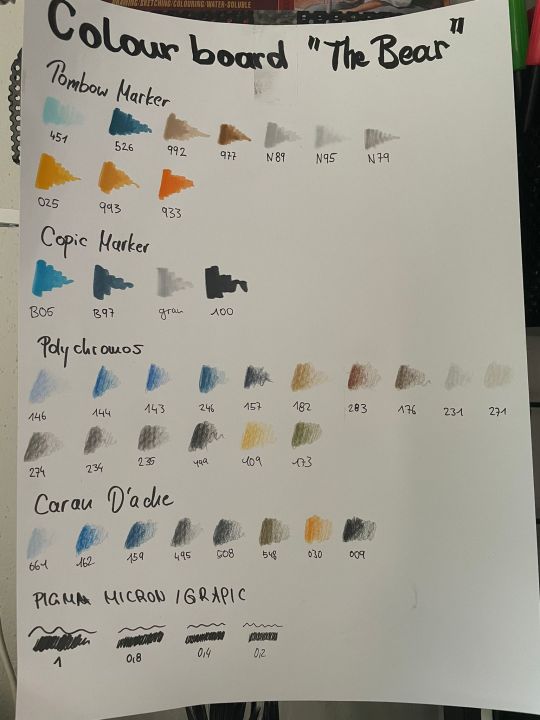 DRAWING/SKETCHING/COLOURING/WATER-SOLUBLE
Colour board "The Bear"
Tombow Marker
451 526 992 977 N89 N95 N79
025 993 933
Copic Marker
B05 B97 grau 100
Polychromos
146 144 143 246 157 182 283 176 231 271
274 234 235 199 109 173
Caran D'ache
661 162 159 495 508 548 030 009
PIGMA MICRON / GRAPIC
1 0,8 0,4 0,2